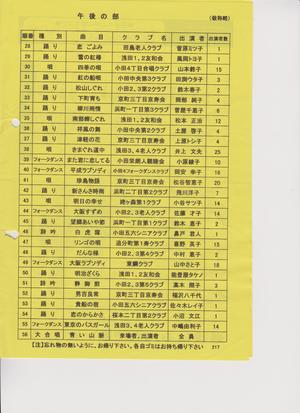 午後の部 (敬称略)
順番 種別 曲目 クラブ名 出演者 出演者数
28 踊り 恋ごよみ 田島老人クラブ 菅原ミツ子 1
29 踊り 雪の紅椿 浅田1,2友和会 風間トヨ子 1
30 唄 四季の唄 小田4丁目合唱クラブ 山本鈴子 15
31 踊り 紅の船唄 小田中央第3クラブ 田渕ウタ子 3
32 踊り 松山しぐれ 小田2,3第2クラブ 鈴木春子 2
33 踊り 下町育ち 京町三丁目京寿会 岡部純子 4
34 踊り 柳川雨情 浜町一丁目第3クラブ 菅原千恵子 6
35 唄 南部蝉しぐれ 浅田1,2友和会 松本正治 12
36 踊り 祥風の舞 小田中央第2クラブ 土屋啓子 4
37 踊り 津軽の花 京町三丁目京寿会 上原トシ子 4
38 唄 さまぐれ道中 浅田3,4老人クラブ 井上文夫 25
39 フォークダンス また君に恋してる 小田栄朗人親睦会 小原綾子 10
40 フォークダンス 平成ラブソディ 小田4フォークダンスクラブ 田安幸子 16
41 唄 珍島物語 京町三丁目京寿会 松谷智恵子 20
42 踊り 新さんさ時雨 京町二丁目第2クラブ 1
43 唄 明日の幸せ 姥ヶ森第1クラブ 小谷サツ子 14
44 フォークダンス 大阪すずめ 小田2,3老人クラブ 佐藤才子 14
45 踊り 望郷あいや節 浜町一丁目第1クラブ 鈴木恵子 2
46 詩吟 白虎隊 小田五六シニアクラブ 島戸君人 1
47 唄 リンゴの唄 追分町第1寿クラブ 喜野英子 15
48 踊り だんな様 小田2,3第4クラブ 中村恵子 2
49 フォークダンス 大阪ラプソディ 東鋼クラブ 山中さと子 18
50 踊り 明治ざくら 浅田1,2友和会 能登原タケノ 1
51 詩吟 静御前 小田2,3第5クラブ 高橋きみ 1
52 踊り 男吉良常 京町三丁目京寿会 福沢八千代 1
53 踊り 貴船の宿 小田五六シニアクラブ 佐々木レイ子 1
54 踊り 恋のからかさ 桜本二丁目第2クラブ 小沼文江 1
55 フォークダンス 東京のバスガール 浅田3,4老人クラブ 中嶋由利子 14
56 大合唱 青い山脈 来場者、出演者 全員
【注】忘れ物の無いように、お帰り下さい。各自ゴミはお持ち帰り下さい 217